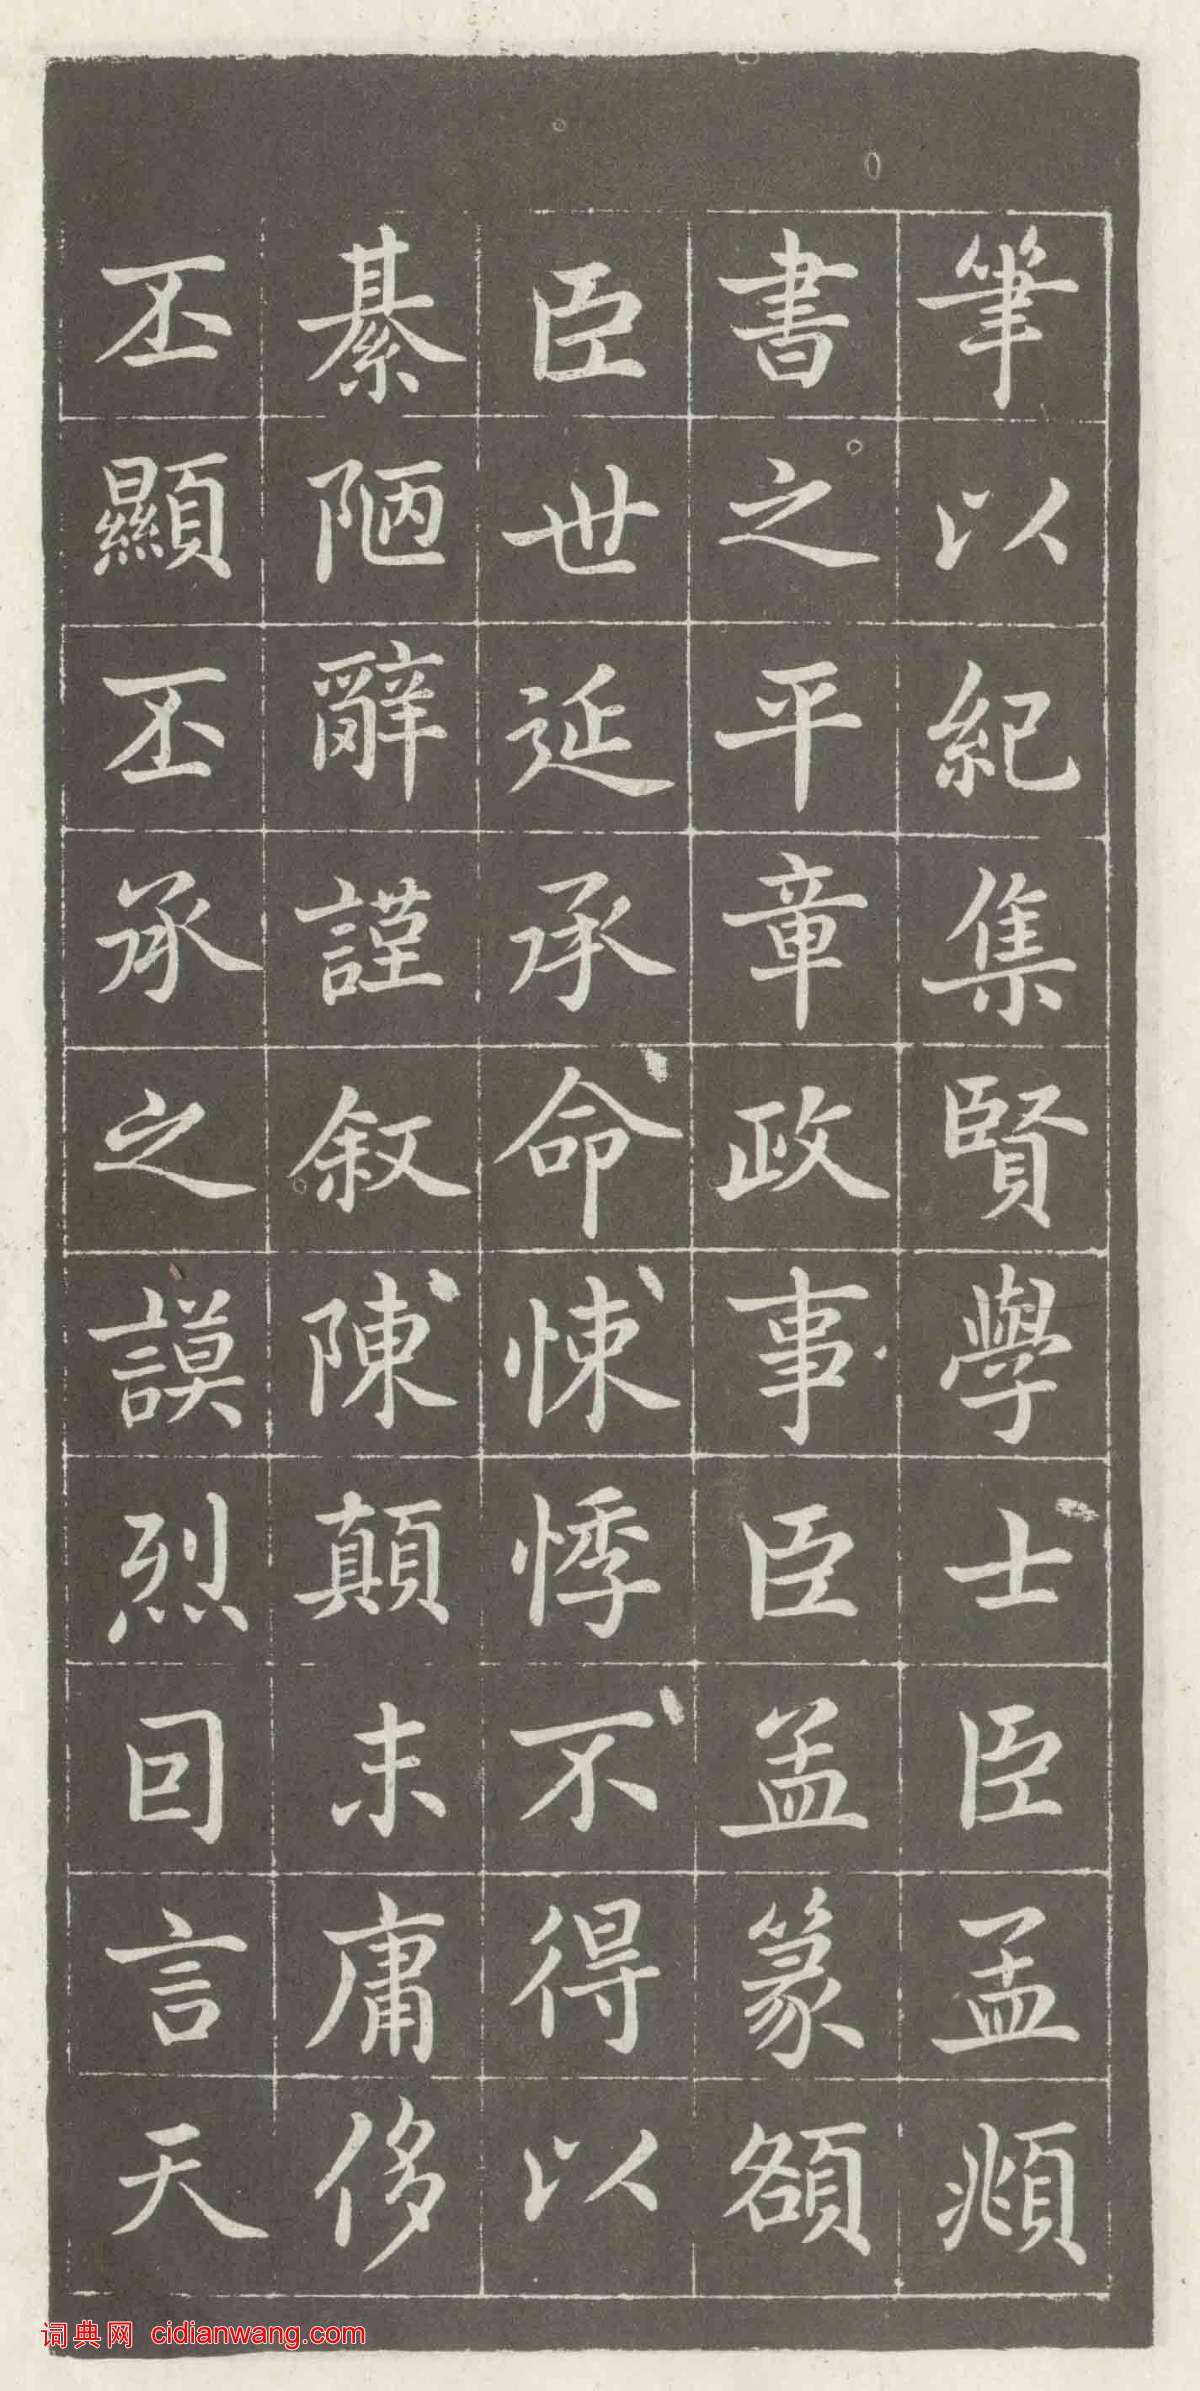 筆以紀集賢學士臣孟頫
書之平章政事臣孟篆額
臣世延承命悚悸不得以
綦陋辭謹敘陳顛末庸侈
丕顯丕承之謨烈囙言天
词典网 cidianwang.com